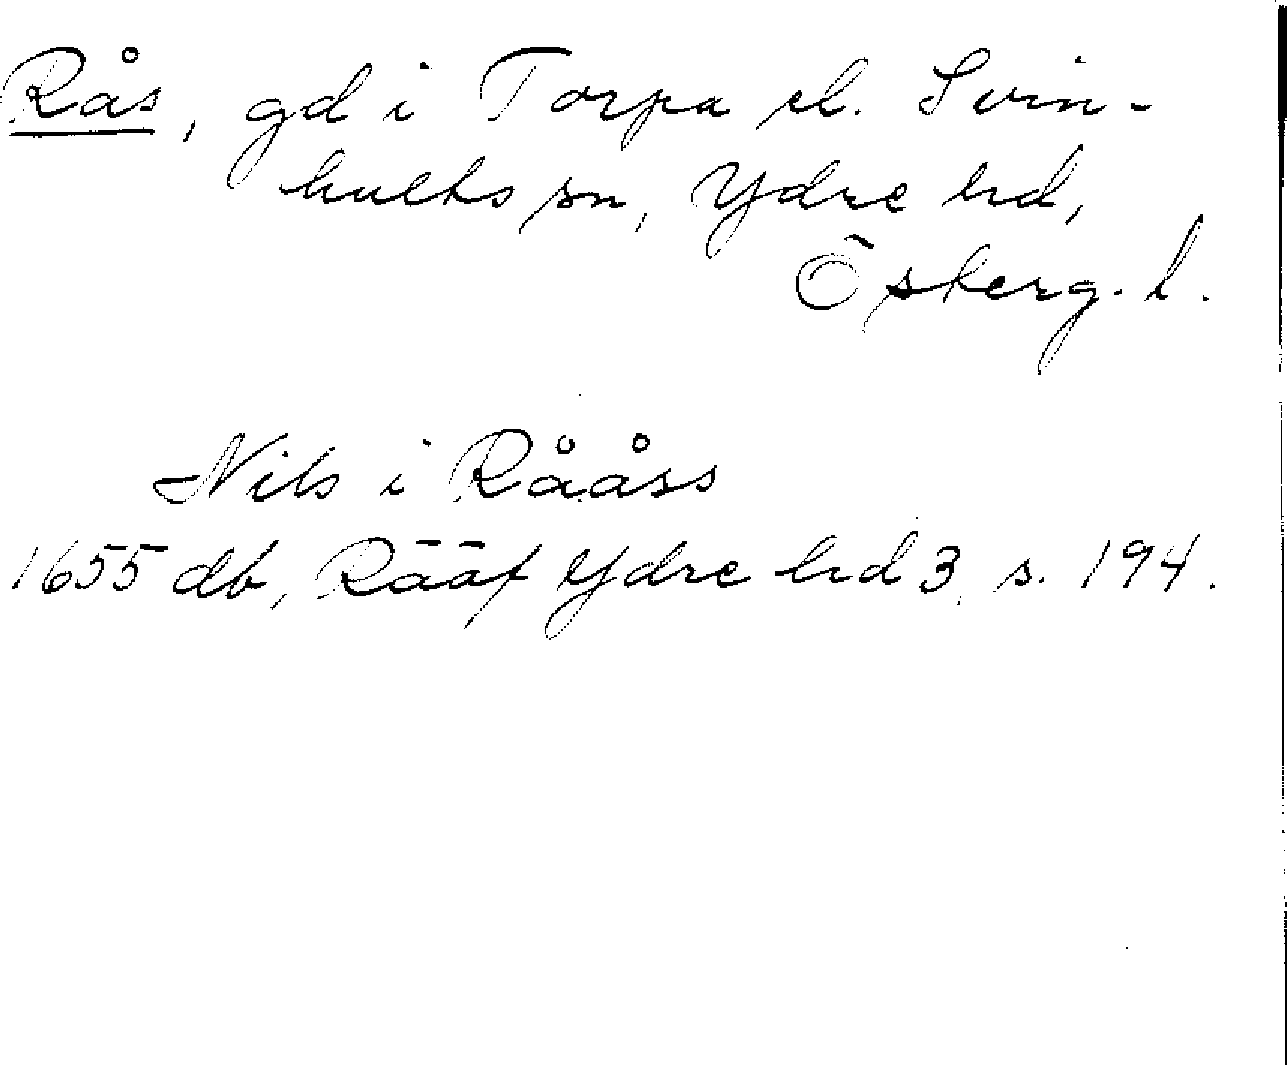 Rås, gd i Torpa el. Svin-
hults sn, Ydre hd,
Österg. l.
Nils i Rååss
1655 db, Rääf Ydre hd 3, s. 194.